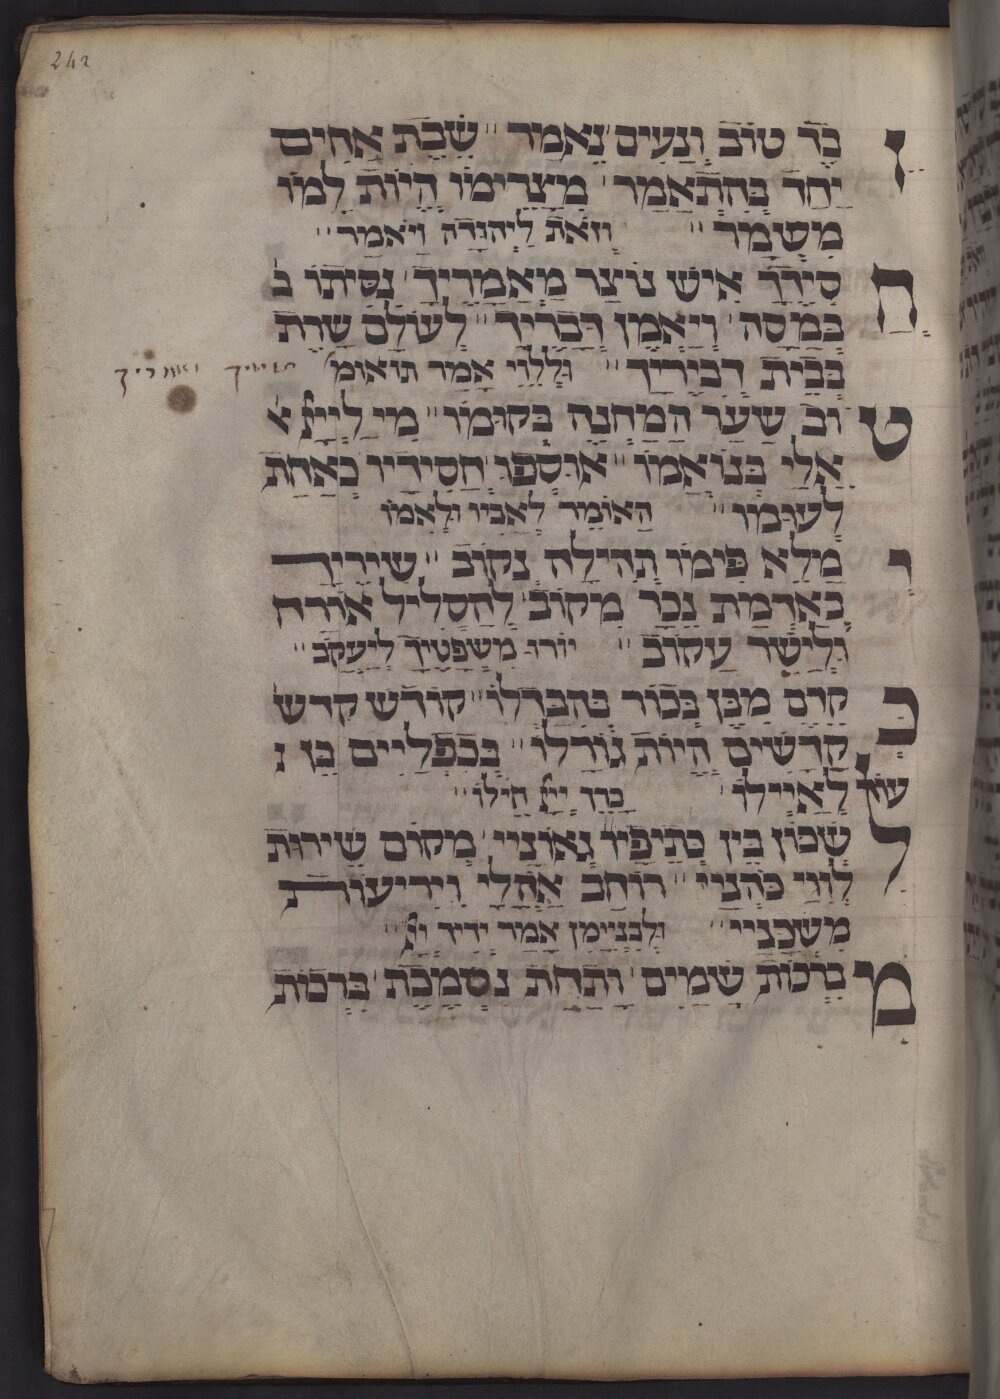 242
ו בר טוב ונעים נאמר ״ שבת אחים
יחד בהתאמר ׳ מצרימו היות למו
משמר ״ וזאת ליהודה ויאמר ״
ח סידך איש נוצר מאמריך ׳ נסיתו ב
במסה ׳ ויאמן דבריך ״ לעולם שרת
בבית דביריך ״ וללוי אמר תו׳ואומ׳
ט וב שער המחנה בקומו ״ מי לייי א
אלי בנואמו ״ אוספו חסידיו כאחת
לעומו ״ האומר לאביו ולאמו
י מלא פימו תהילה נקוב ״ שיריה
כארמת נכר מקוב ׳ להסליל אורח
ולישר עקוב ״ יורו משפטיך ליעקב ״
כ קדם מבן בכור בהבדלו ״ קודש קדש
קדשים היות גורלו ״ בכפליים בו נ
עוז לאיילו ׳ ברך ייי חילו ״
ל שכון בין כתיפיו גאוניי ׳ מקום שירות
לווי כהניי ״ רוחב אהלי ויריעות
משכניי ״ ולבניימן אמר ידיד ייי ״
מ ברכות שמים ׳ ותחת נסמכת ׳ ברכות